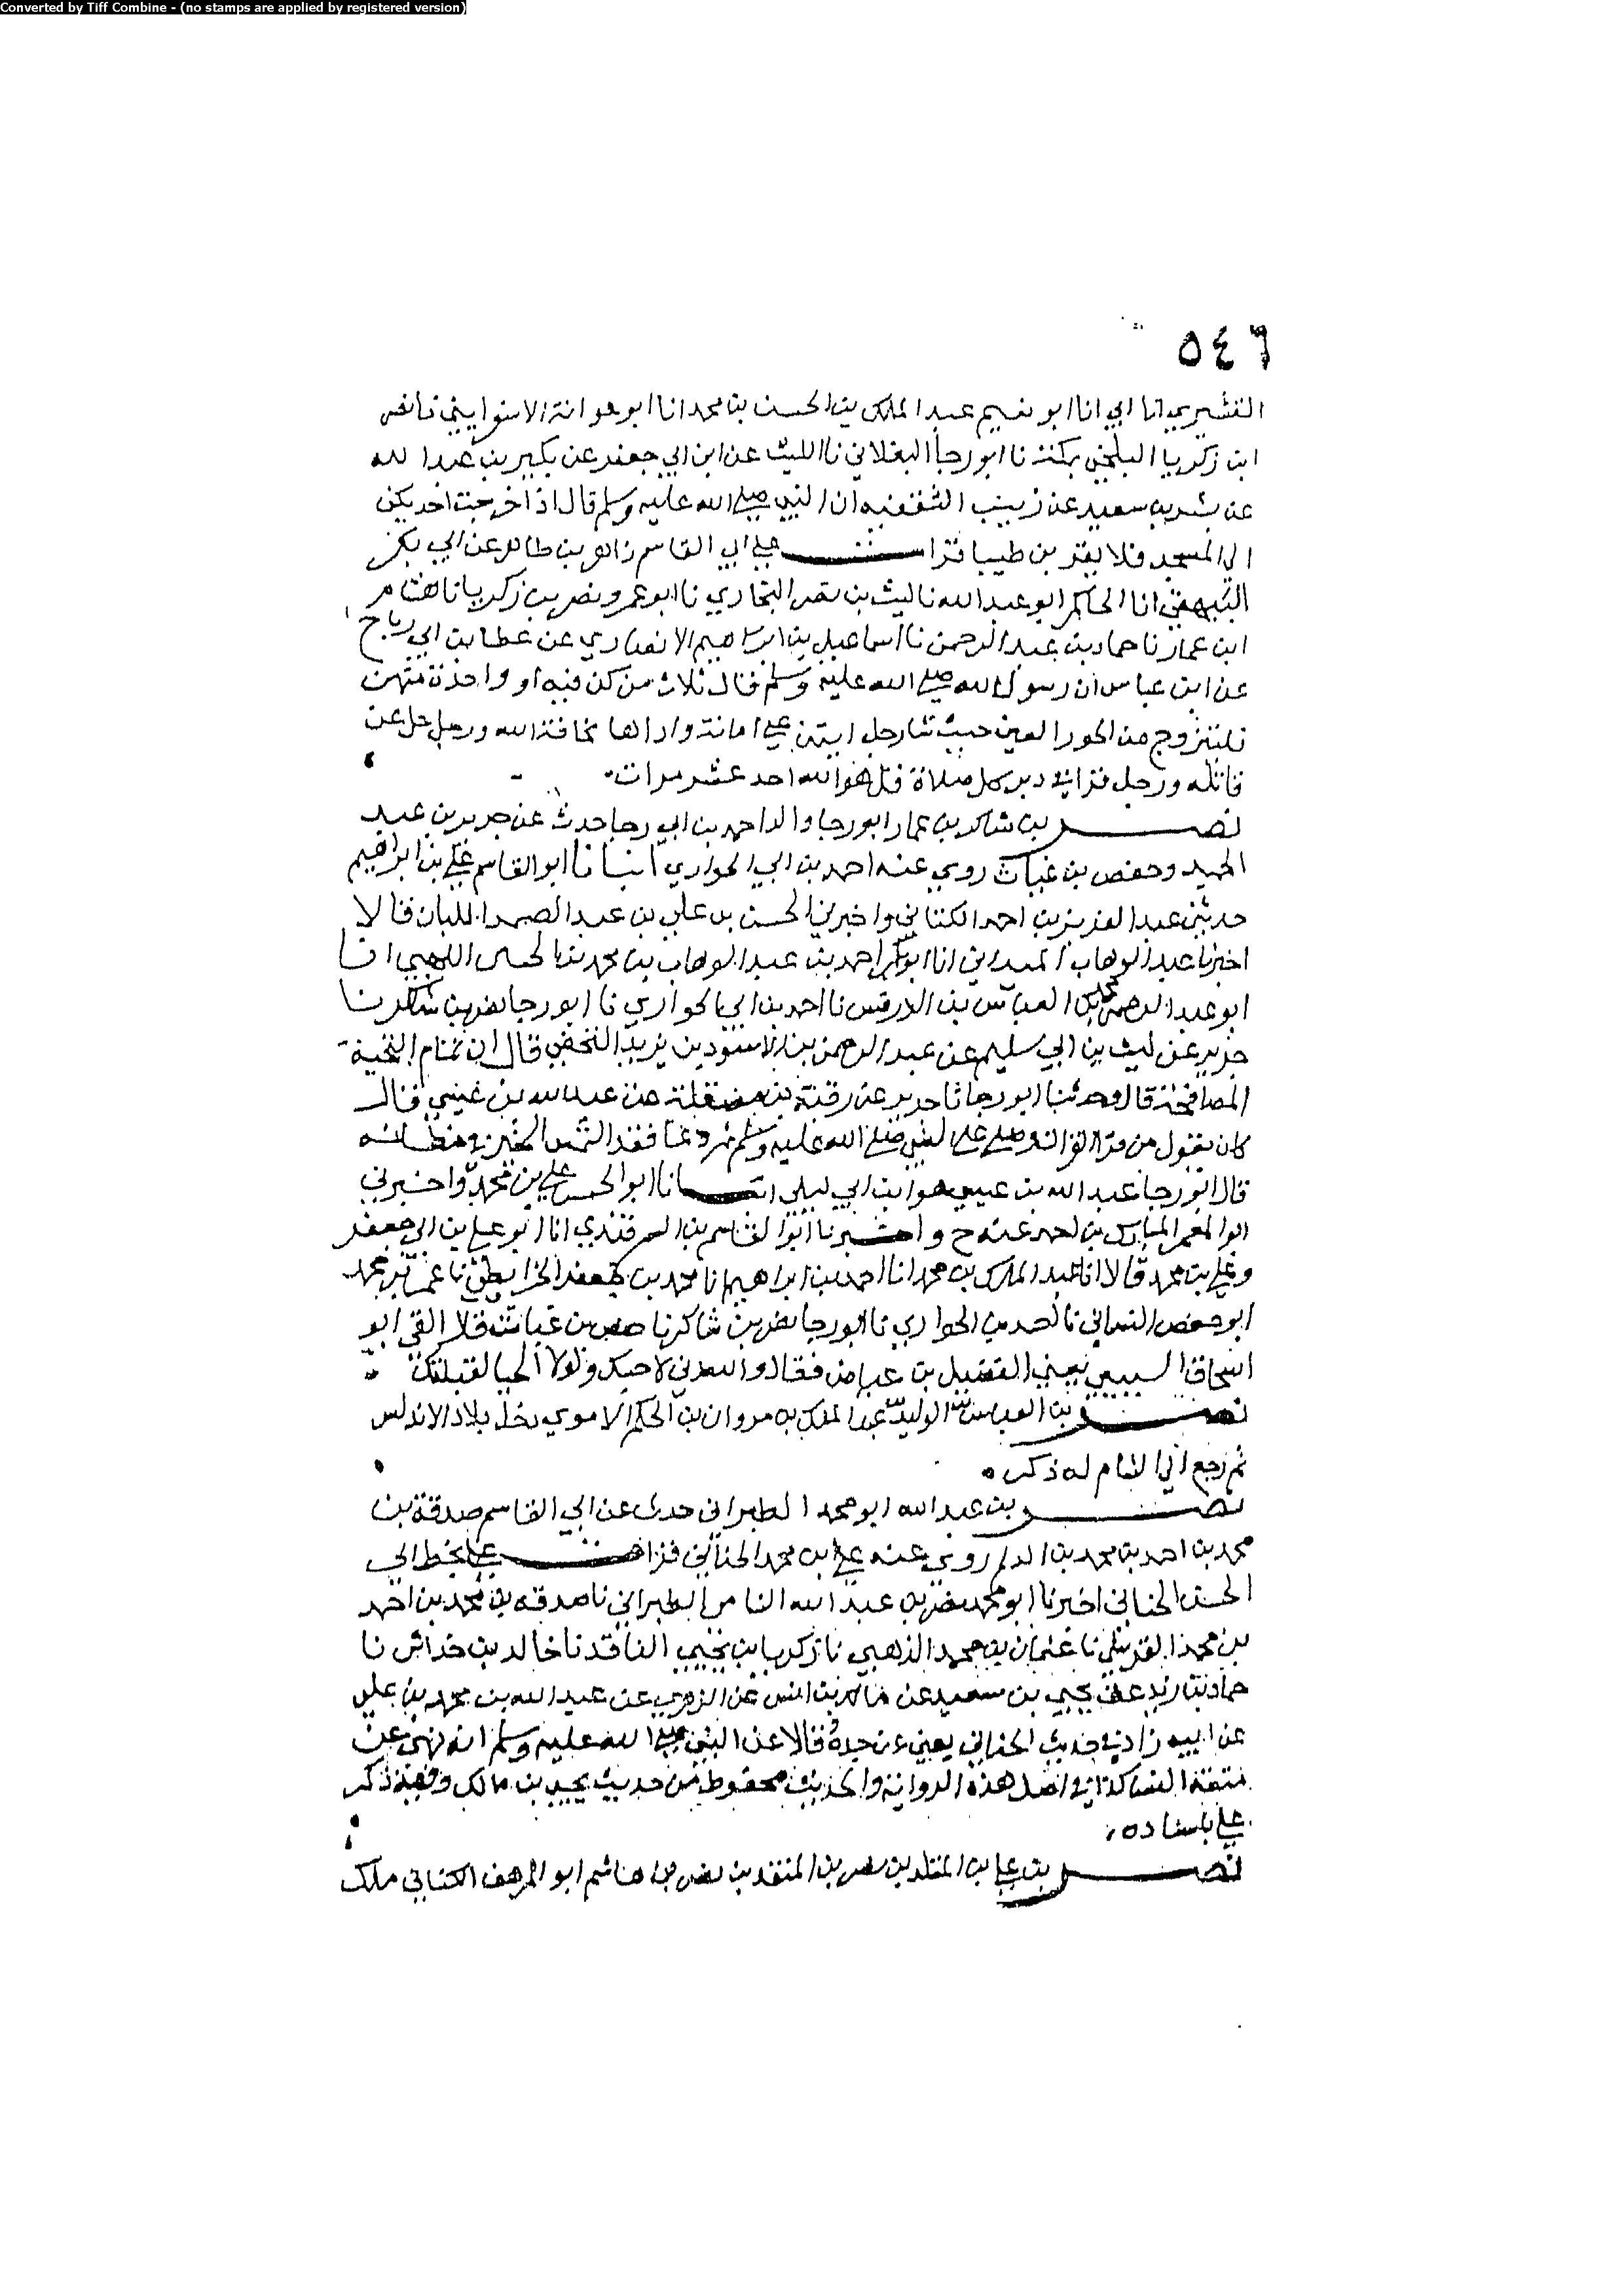 Converted by Tiff Combine - (no stamps are applied by registered version)
٥٤٦
القشيري انا ابي انا ابو نعيم عبد الملك بن الحسن بن محمد انا ابو عوانة الاسفراييني نا نصر
ابن زكريا البلخي بمكة نا ابو رجا البغلاني نا الليث عن ابن ابي جعفر عن بكير بن عبد الله
عن بشر بن سعيد عن زينب الثقفيه ان النبي صلى الله عليه وسلم قال اذا خرجت احديكن
الى المسجد فلا يقربن طيبا قرات على ابي القاسم زاهر بن طاهر عن ابي بكر
البيهقي انا الحاكم ابو عبد الله نا ليث بن نصر البخاري نا ابو عمرو نصر بن زكريا نا هشام
ابن عمار نا حماد بن عبد الرحمن نا اسماعيل بن ابراهيم الانصاري عن عطا بن ابي رباح
عن ابن عباس ان رسول الله صلى الله عليه وسلم قال ثلاث من كن فيه او واحدة منهن
فليتزوج من الحور العين حيث شا رجل ايتمن على امانة واداها مخافة الله ورجل خل عن
قاتله ورجل قرا في دبر كل صلاة قل هو الله احد عشر مرات
نصر بن شاكر بن عمار ابو رجا والد احمد بن ابي رجا حدث عن جرير بن عبد
الحميد وحفص بن غياث روى عنه احمد بن ابي الحواري انبانا ابو القاسم علي بن ابراهيم
حدثني عبد العزيز بن احمد الكتاني واخبرني الحسن بن علي بن عبد الصمد اللبان قالا
اخبرنا عبد الوهاب الميداني انا ابو بكر احمد بن عبد الوهاب بن محمد بن الحسن اللهبي انا
ابو عبد الرحمن محمد بن العباس بن الدرفس نا احمد بن ابي الحواري نا ابو رجا نصر بن شاكر نا
جرير عن ليث بن ابي سليم عن عبد الرحمن بن الاسود بن يزيد النخعي قال ان تمام التحية
المصافحة قال وحدثنا ابو رجا نا جرير عن رقبة بن مصقلة عن عبد الله بن عيسى قال
كان يقول من قرا القران وصلى على النبي صلى الله عليه وسلم ثم دعا فقد التمس الخير من مظانه
قال ابو رجا عبد الله بن عيسى هو ابن ابي ليلى انبانا ابو الحسن علي بن محمد واخبرني
ابو المعمر المبارك بن احمد عنه ح واخبرنا ابو القاسم بن السمرقندي انا ابو علي بن ابي جعفر
وعلي بن محمد قالا انا عبد الملك بن محمد انا احمد بن ابراهيم نا محمد بن جعفر الخرايطي نا عمر بن محمد
ابو حفص النسائي نا احمد بن الحواري نا ابو رجا نصر بن شاكر نا حفص بن غياث قال القي ابو
اسحاق السبيعي يعني الفضيل بن عياض فقال والله اني لاحبك ولولا الحيا لقبلتك
نصر بن العباس بن الوليد بن عبد الملك بن مروان بن الحكم الاموي دخل بلاد الاندلس
ثم رجع الى الشام له ذكر
نصر بن عبد الله ابو محمد الطبراني حدث عن ابي القاسم صدقة بن
محمد بن احمد بن محمد بن الدلم روى عنه علي بن محمد الحنائي قرات على بخط ابي
الحسن الحنائي اخبرنا ابو محمد نصر بن عبد الله الشامي الطبراني نا صدقه بن محمد بن احمد
بن محمد القرشي نا عثمان بن محمد الذهبي نا زكريا بن يحيى الناقد نا خالد بن خداش نا
حماد بن زيد عن يحيى بن سعيد عن مالك بن انس عن الزهري عن عبد الله بن محمد بن علي
عن ابيه زاد في حديث الحنائي يعني عن جده قالا عن النبي صلى الله عليه وسلم انه نهى عن
متعة النسا كذا في اصل هذه الرواية والحديث محفوظ من حديث يحيى بن مالك وفيه ذكر
علي باسناده
نصر بن علي بن المقلد بن نصر بن المنقذ بن نصر بن هاشم ابو المرهف الكناني ملك